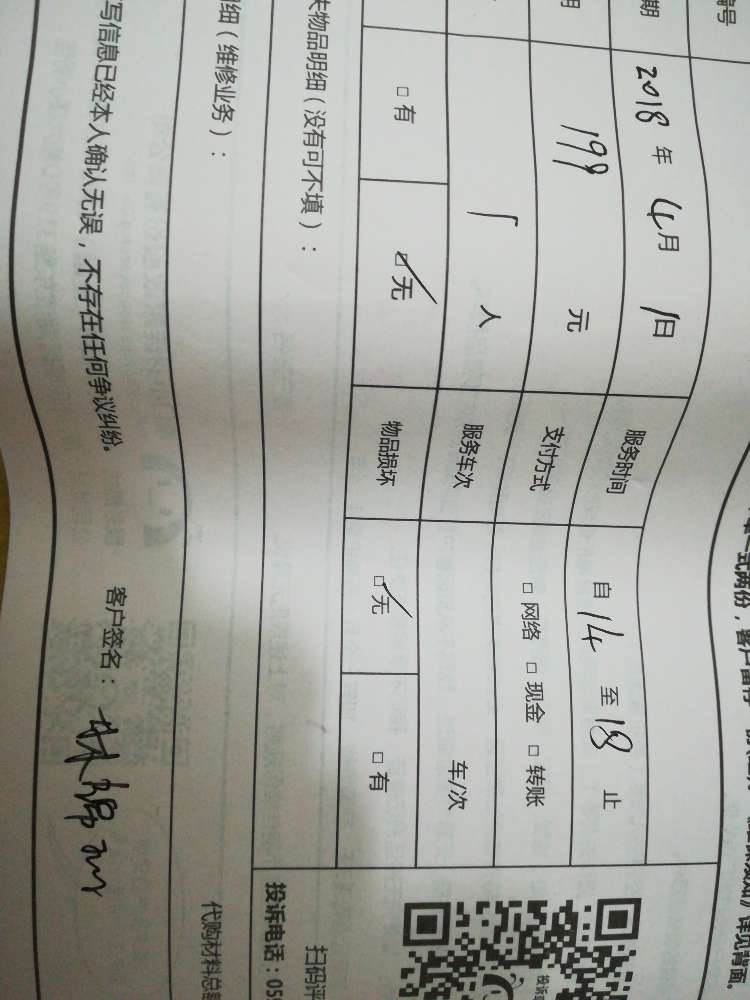 编号
期 2018年 4月 1日 服务时间 自14至18止
199 元 支付方式 □网络 □现金 □转账
1 人 服务车次 车/次
□有 ☑无 物品损坏 ☑无 □有
失物品明细（没有可不填）：
投诉电话：05
扫码评
细（维修业务）：
代购材料总
写信息已经本人确认无误，不存在任何争议纠纷。 客户签名：
一式两份，客户留存
详见背面。